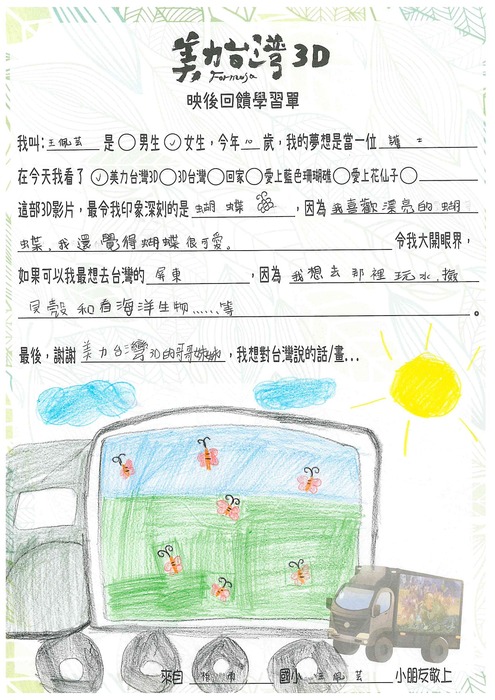 美力台灣3D
Formosa
映後回饋學習單
我叫:王佩芸 是○男生✓女生，今年 歲，我的夢想是當一位 護士
在今天我看了 ✓美力台灣3D○3D台灣○回家○愛上藍色珊瑚礁○愛上花仙子○
這部3D影片，最令我印象深刻的是 蝴蝶 ，因為 我喜歡漂亮的蝴
蝶,我還覺得蝴蝶很可愛。 令我大開眼界，
如果可以我最想去台灣的 屏東 ，因為 我想去那裡玩水,撿
貝殼和看海洋生物......等 。
最後，謝謝 美力台灣3D的哥哥姊姊 ，我想對台灣說的話/畫...
來自 國小 王佩芸 小朋友敬上